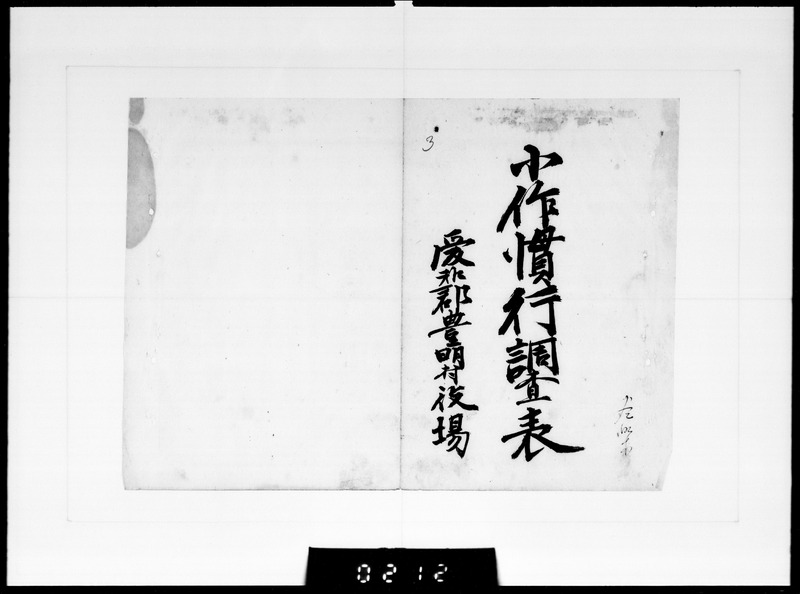 小作慣行調査表
愛知郡豊明村役場
3
0212